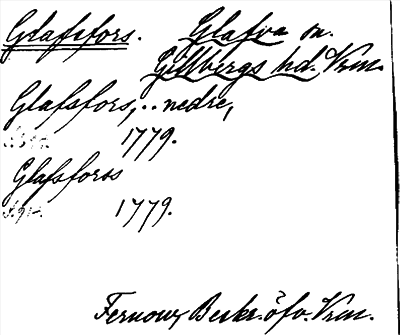 Glafsfors. Glafva sn.
Gillbergs hd. Vrm.
Glafsfors, .. nedre,
1779.
Glafsforss
1779.
Fernow, Beskr. öfv. Vrm.